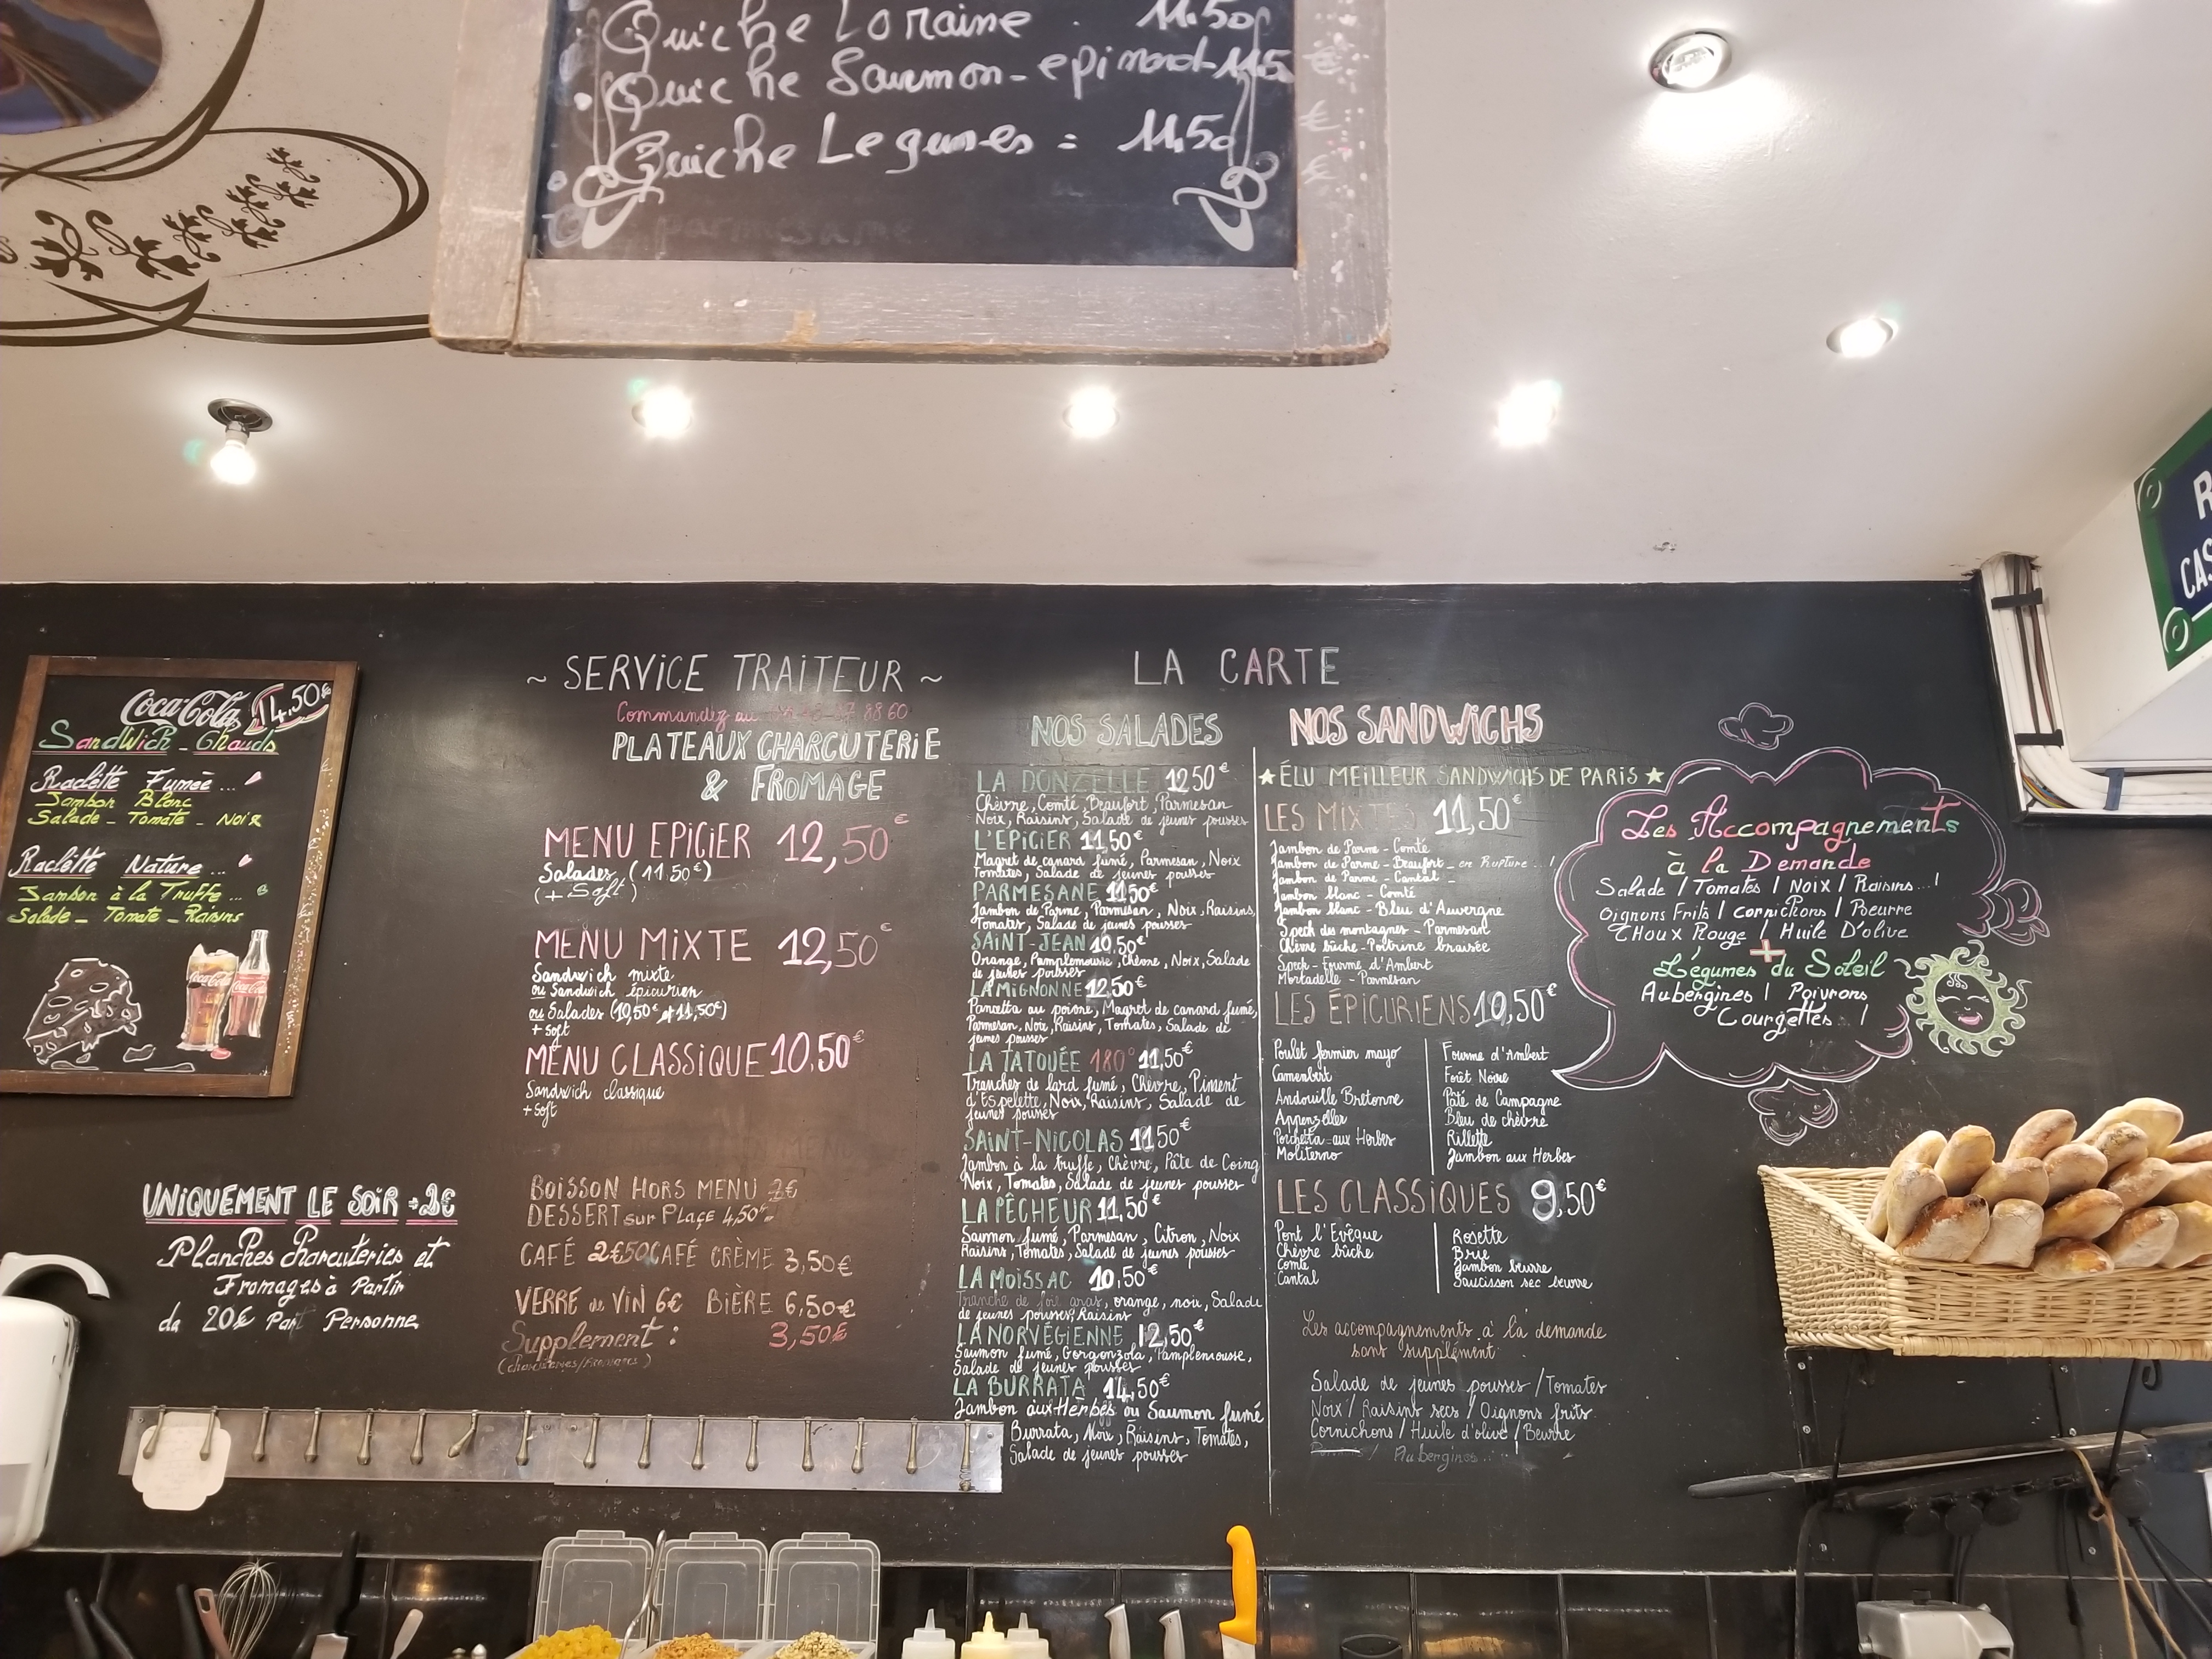 Quiche Loraine . 11.50
Quiche Saumon-epinard 11.5
Quiche Legumes = 11.50
parmesane
R
CAS
Coca-Cola 14,50€
Sandwich - Chauds
Raclette Fumée ...
Jambon Blanc
Salade - Tomate - Noix
Raclette Nature ...
Jambon à la Truffe ...
Salade - Tomate - Raisins
Coca-Cola
UNIQUEMENT LE SOIR +2€
Planches Charcuteries et
Fromages à Partir
de 20€ Part Personne
~ SERVICE TRAITEUR ~
Commandez au 88 60
PLATEAUX CHARCUTERIE
& FROMAGE
MENU EPICIER 12,50€
Salades (11.50€)
(+ Soft)
MENU MIXTE 12,50€
Sandwich mixte
ou Sandwich épicurien
ou Salades (10,50€ et 11,50€)
+ soft
MENU CLASSIQUE 10,50€
Sandwich classique
+ soft
BOISSON HORS MENU 2€
DESSERT sur Plaçe 4,50€
CAFÉ 2€50 CAFÉ CRÈME 3,50€
VERRE de VIN 6€ BIÈRE 6,50€
Supplement : 3,50€
(charcuteries/fromages)
LA CARTE
NOS SALADES
LA DONZELLE 12 50€
Chèvre, Comté, Beaufort, Parmesan
Noix, Raisins, Salade de jeunes pousses
L'EPICIER 11,50€
Magret de canard fumé, Parmesan, Noix
Tomates, Salade de jeunes pousses
PARMESANE 11 50€
Jambon de Parme, Parmesan, Noix, Raisins,
Tomates, Salade de jeunes pousses
SAINT-JEAN 10.50€
Orange, Pamplemousse, Chèvre, Noix, Salade
de jeunes pousses
LA MIGNONNE 12.50€
Pancetta au poivre, Magret de canard fumé,
Parmesan, Noix, Raisins, Tomates, Salade de
jeunes pousses
LA TATOUÉE 180° 11,50€
Tranches de lard fumé, Chèvre, Piment
d'Espelette, Noix, Raisins, Salade de
jeunes pousses
SAINT-NICOLAS 11 50€
Jambon à la truffe, Chèvre, Pâte de Coing
Noix, Tomates, Salade de jeunes pousses
LA PÊCHEUR 11,50€
Saumon fumé, Parmesan, Citron, Noix
Raisins, Tomates, Salade de jeunes pousses
LA MOISSAC 10,50€
Tranche de foie gras, orange, noix, Salade
de jeunes pousses, Raisins
LA NORVÉGIENNE 12,50€
Saumon fumé, Gorgonzola, Pamplemousse,
Salade de jeunes pousses
LA BURRATA 14,50€
Jambon aux Herbes ou Saumon fumé
Burrata, Noix, Raisins, Tomates,
Salade de jeunes pousses
NOS SANDWICHS
★ ÉLU MEILLEUR SANDWICHS DE PARIS ★
LES MIXTES 11,50€
Jambon de Parme - Comté
Jambon de Parme - Beaufort - en Rupture...!
Jambon de Parme - Cantal -
Jambon blanc - Comté
Jambon blanc - Bleu d'Auvergne
Speck des montagnes - Parmesan
Chèvre bûche - Poitrine braisée
Speck - Fourme d'Ambert
Mortadelle - Parmesan
LES ÉPICURIENS 10,50€
Poulet fermier mayo
Camenbert
Andouille Bretonne
Appenzeller
Porchetta aux Herbes
Moliterno
Fourme d'Ambert
Forêt Noire
Pâté de Campagne
Bleu de chèvre
Rillette
Jambon aux Herbes
LES CLASSIQUES 9,50€
Pont l'Evêque
Chèvre bûche
Comté
Cantal
Rosette
Brie
Jambon beurre
Saucisson sec beurre
Les accompagnements à la demande
sans supplément
Salade de jeunes pousses / Tomates
Noix / Raisins secs / Oignons frits
Cornichons / Huile d'olive / Beurre
/ Aubergines...!
Les Accompagnements
à la Demande
Salade / Tomates / Noix / Raisins...!
Oignons Frits / Cornichons / Beurre
CHoux Rouge / Huile D'olive
+
Légumes du Soleil
Aubergines / Poivrons
Courgettes...!